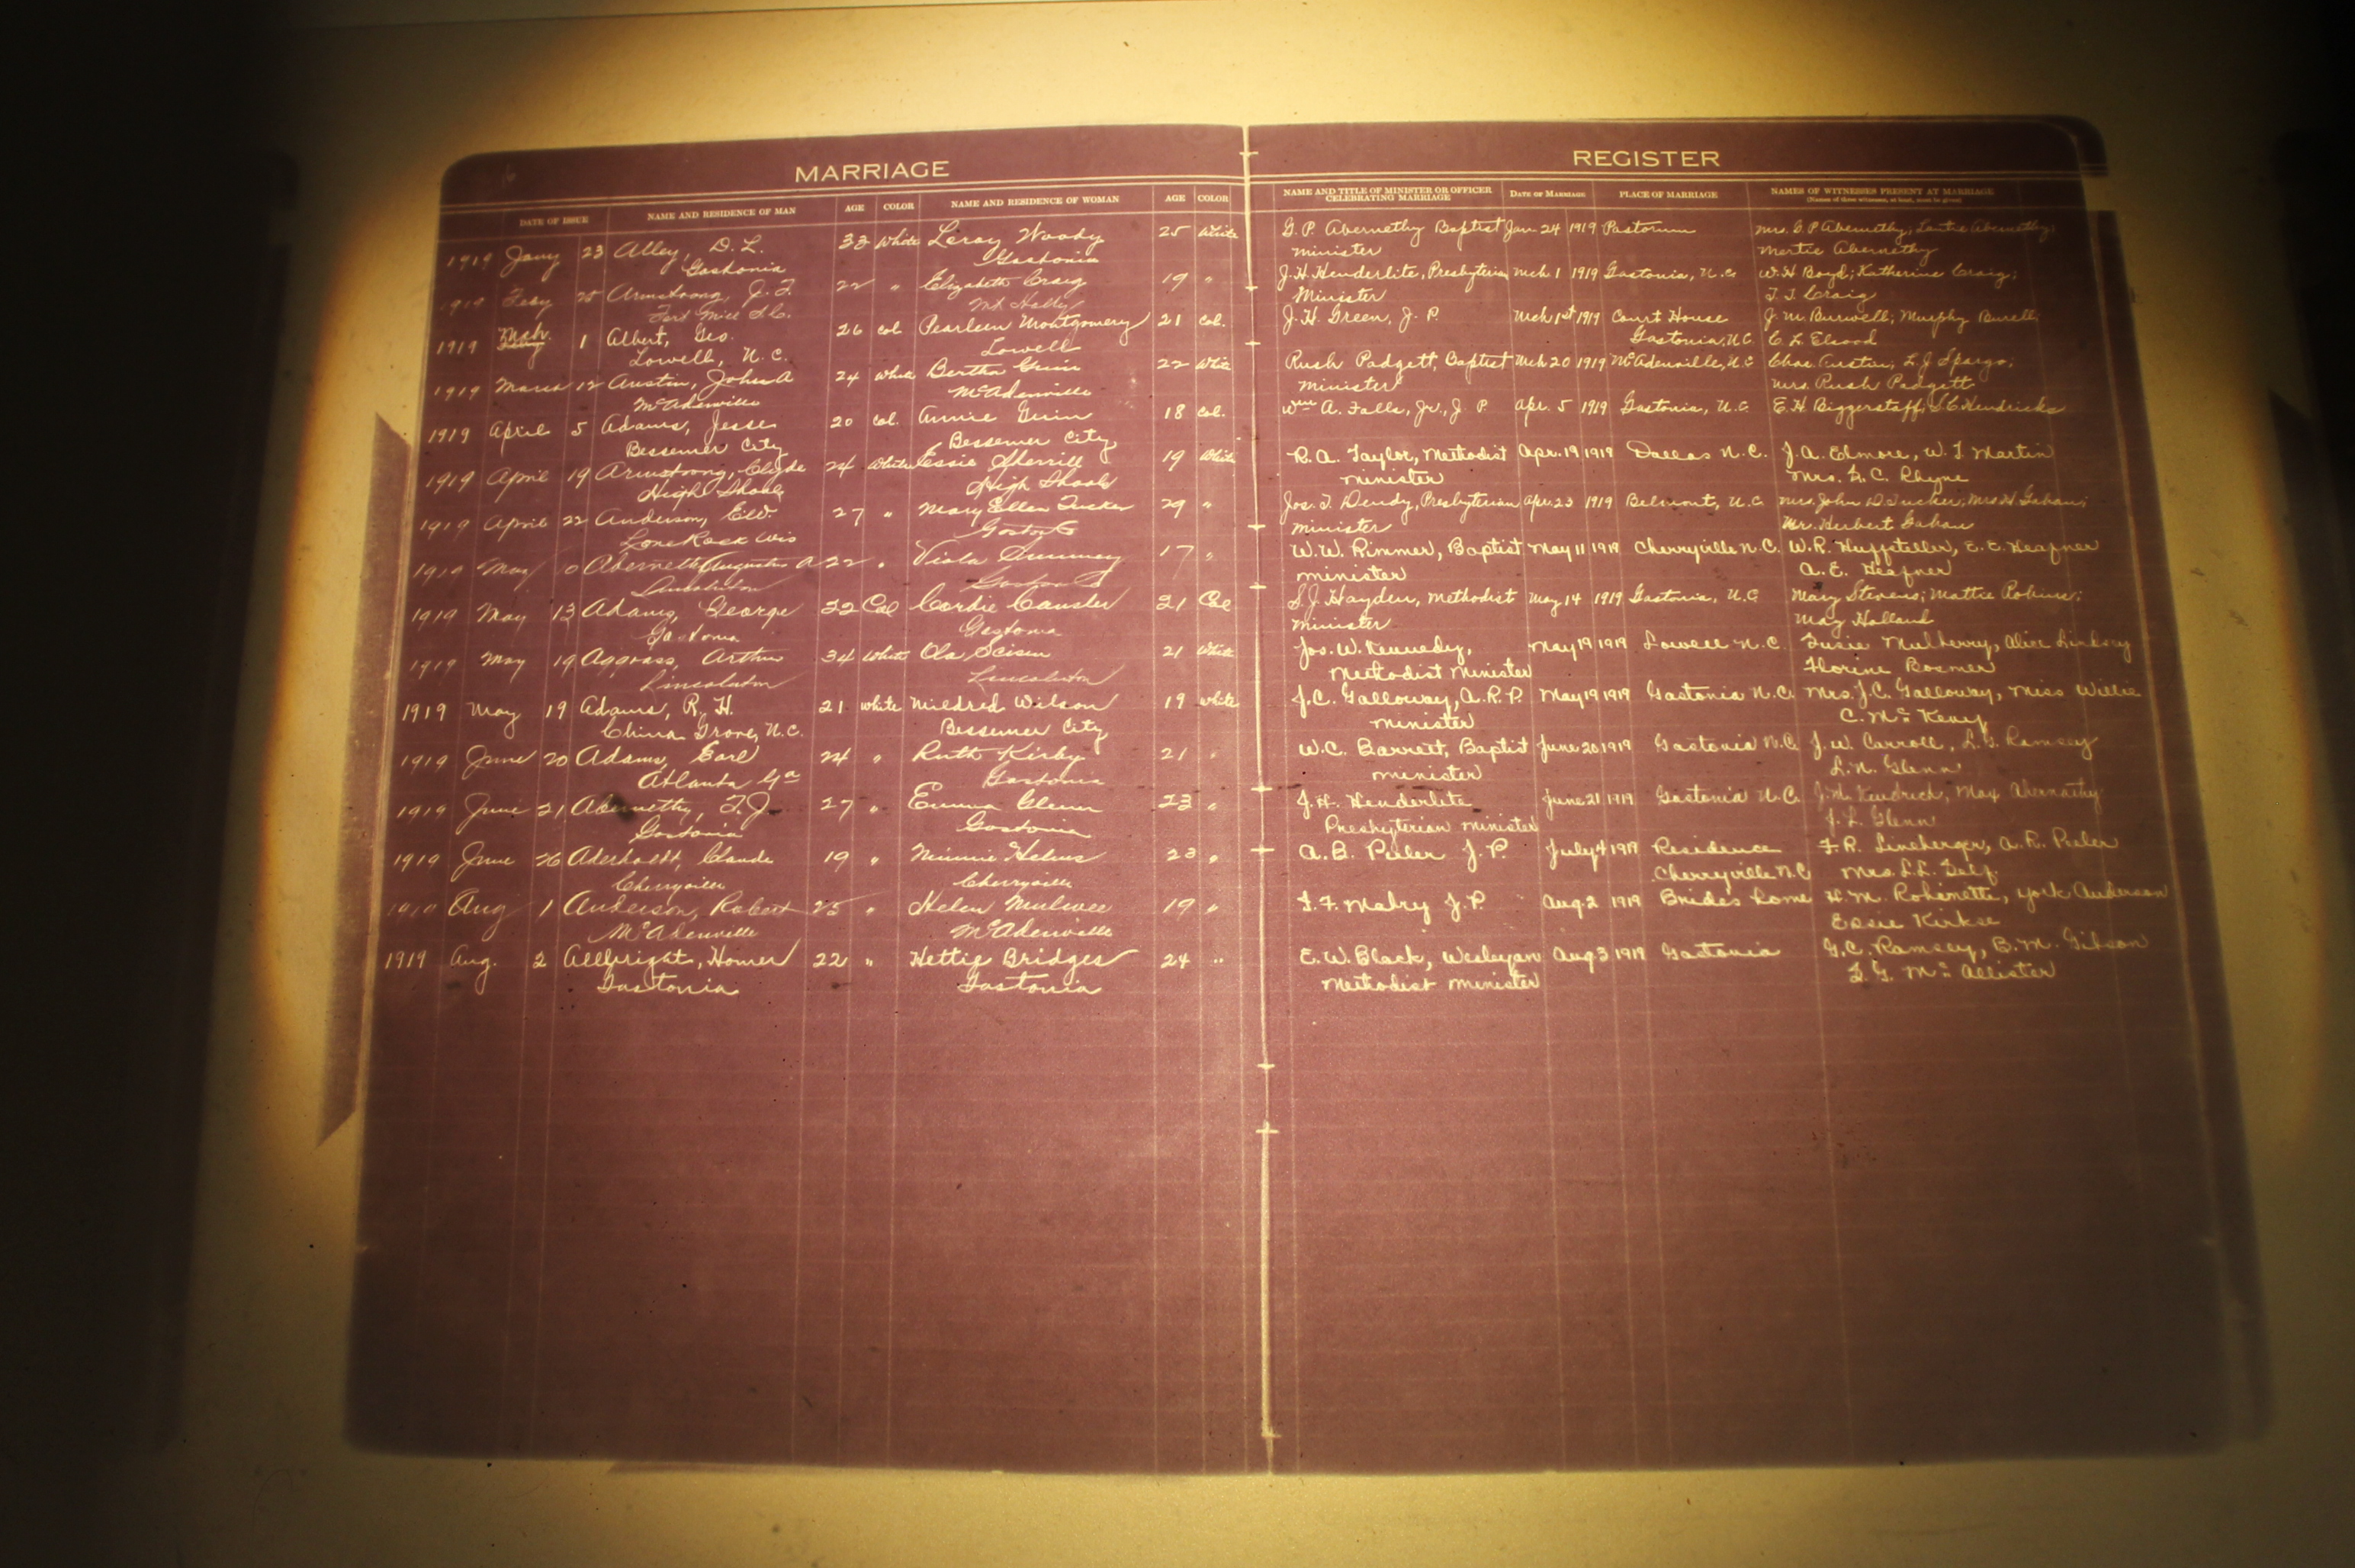 MARRIAGE
DATE OF ISSUE NAME AND RESIDENCE OF MAN AGE COLOR NAME AND RESIDENCE OF WOMAN AGE COLOR
1919 Jany 23 Alley, D. L. 33 White Leroy Woody 25 White
Gastonia Gastonia
1919 Feby 25 Armstrong, J. F. 22 " Elizabeth Craig 19 "
Fort Mill S.C. Mt Holly
1919 Mch. 1 Albert, Geo. 26 col Pearleen Montgomery 21 col.
Lowell, N. C. Lowell
1919 March 12 Austin, John A 24 White Bertha Guin 22 White
McAdenville McAdenville
1919 April 5 Adams, Jesse 20 col. Annie Guin 18 col.
Bessemer City Bessemer City
1919 April 19 Armstrong, Clyde 24 White Essie Sherrill 19 White
High Shoals High Shoals
1919 April 22 Anderson, Ed. 27 " Mary Ellen Tucker 29 "
Lone Rock Wis Gaston Co
1919 May 10 Abernethy Augustus A 22 " Viola Summey 17 "
Lincolnton Gaston Co
1919 May 13 Adams, George 22 Col Cordie Cansler 21 Col
Gastonia Gastonia
1919 May 19 Arthur 34 White Ola 21 White
Lincolnton Lincolnton
1919 May 19 Adams, R. H. 21 white Mildred Wilson 19 white
China Grove, N.C. Bessemer City
1919 June 20 Adams, Earl 24 " Ruth Kirby 21 "
Atlanta Ga Gastonia
1919 June 21 Abernethy, F. J. 27 " Emma Glenn 23 "
Gastonia Gastonia
1919 June 26 Aderholdt, Claude 19 " Minnie Helms 23 "
Cherryville Cherryville
1919 Aug 1 Anderson, Robert 25 " Helen Mulwee 19 "
McAdenville McAdenville
1919 Aug. 2 Allbright, Homer 22 " Hettie Bridges 24 "
Gastonia Gastonia
REGISTER
NAME AND TITLE OF MINISTER OR OFFICER CELEBRATING MARRIAGE DATE OF MARRIAGE PLACE OF MARRIAGE NAMES OF WITNESSES PRESENT AT MARRIAGE
(Names of three witnesses, at least, must be given)
G. P. Abernethy Baptist Jan. 24 1919 Pastorium Mrs. G P Abernethy, Abernethy,
minister Mertie Abernethy
J. H. Henderlite, Presbyterian Mch. 1 1919 Gastonia, N.C. W. H Boyd; Katherine Craig;
Minister T. J. Craig
J. H. Green, J. P. Mch 1st 1919 Court House J. M. Burwell; Murphy
Gastonia, N.C. C. L.
Rush Padgett, Baptist Mch 20 1919 McAdenville, N.C Chas. Austin; L. J Spargo;
minister Mrs. Rush Padgett
Wm A. Falls, Jr., J. P. Apr. 5 1919 Gastonia, N.C. E. H Biggerstaff, S. C Hendricks
R. A. Taylor, Methodist Apr. 19 1919 Dallas N.C. J. A. Elmore, W. T Martin
minister Mrs. C. Rhyne
Jos. T. Dendy, Presbyterian Apr. 23 1919 Belmont, N.C. Mrs. John D Tucker; Mrs H. Gahan;
minister Mr. Herbert Gahan
W. W. Rimmer, Baptist May 11 1919 Cherryville N.C. W. R. Huffsteller, E. E. Heafner
minister A. E. Heafner
S. J. Hayden, Methodist May 14 1919 Gastonia, N.C Mary Stevens; Mattie Robins;
minister May Holland
Jos. W. Kennedy, May 19 1919 Lowell N.C. Susie Mulberry, Alice Lindsey
Methodist Minister Florine Boomer
J. C. Galloway, A.R.P. May 19 1919 Gastonia N.C. Mrs. J. C. Galloway, Miss Willie
minister C. Mc Keny
W. C. Barrett, Baptist June 20 1919 Gastonia N.C. J. W. Carroll, L. G. Ramsey
minister L. N. Glenn
J. H. Henderlite June 21 1919 Gastonia N.C. Kendrick, May Abernathy
Presbyterian minister J. L. Glenn
A. B. Peeler J. P. July 4 1919 Residence F. R. Lineberger, A. R. Peeler
Cherryville N.C. Mrs. L. L. Self.
I. F. Mabry J. P. Aug 2 1919 Brides home H. M. Robinette, York Anderson
Essie Kirkse
E. W. Black, Wesleyan Aug 3 1919 Gastonia G. C. Ramsey, B. M. Gibson
Methodist minister G. Mc Allister